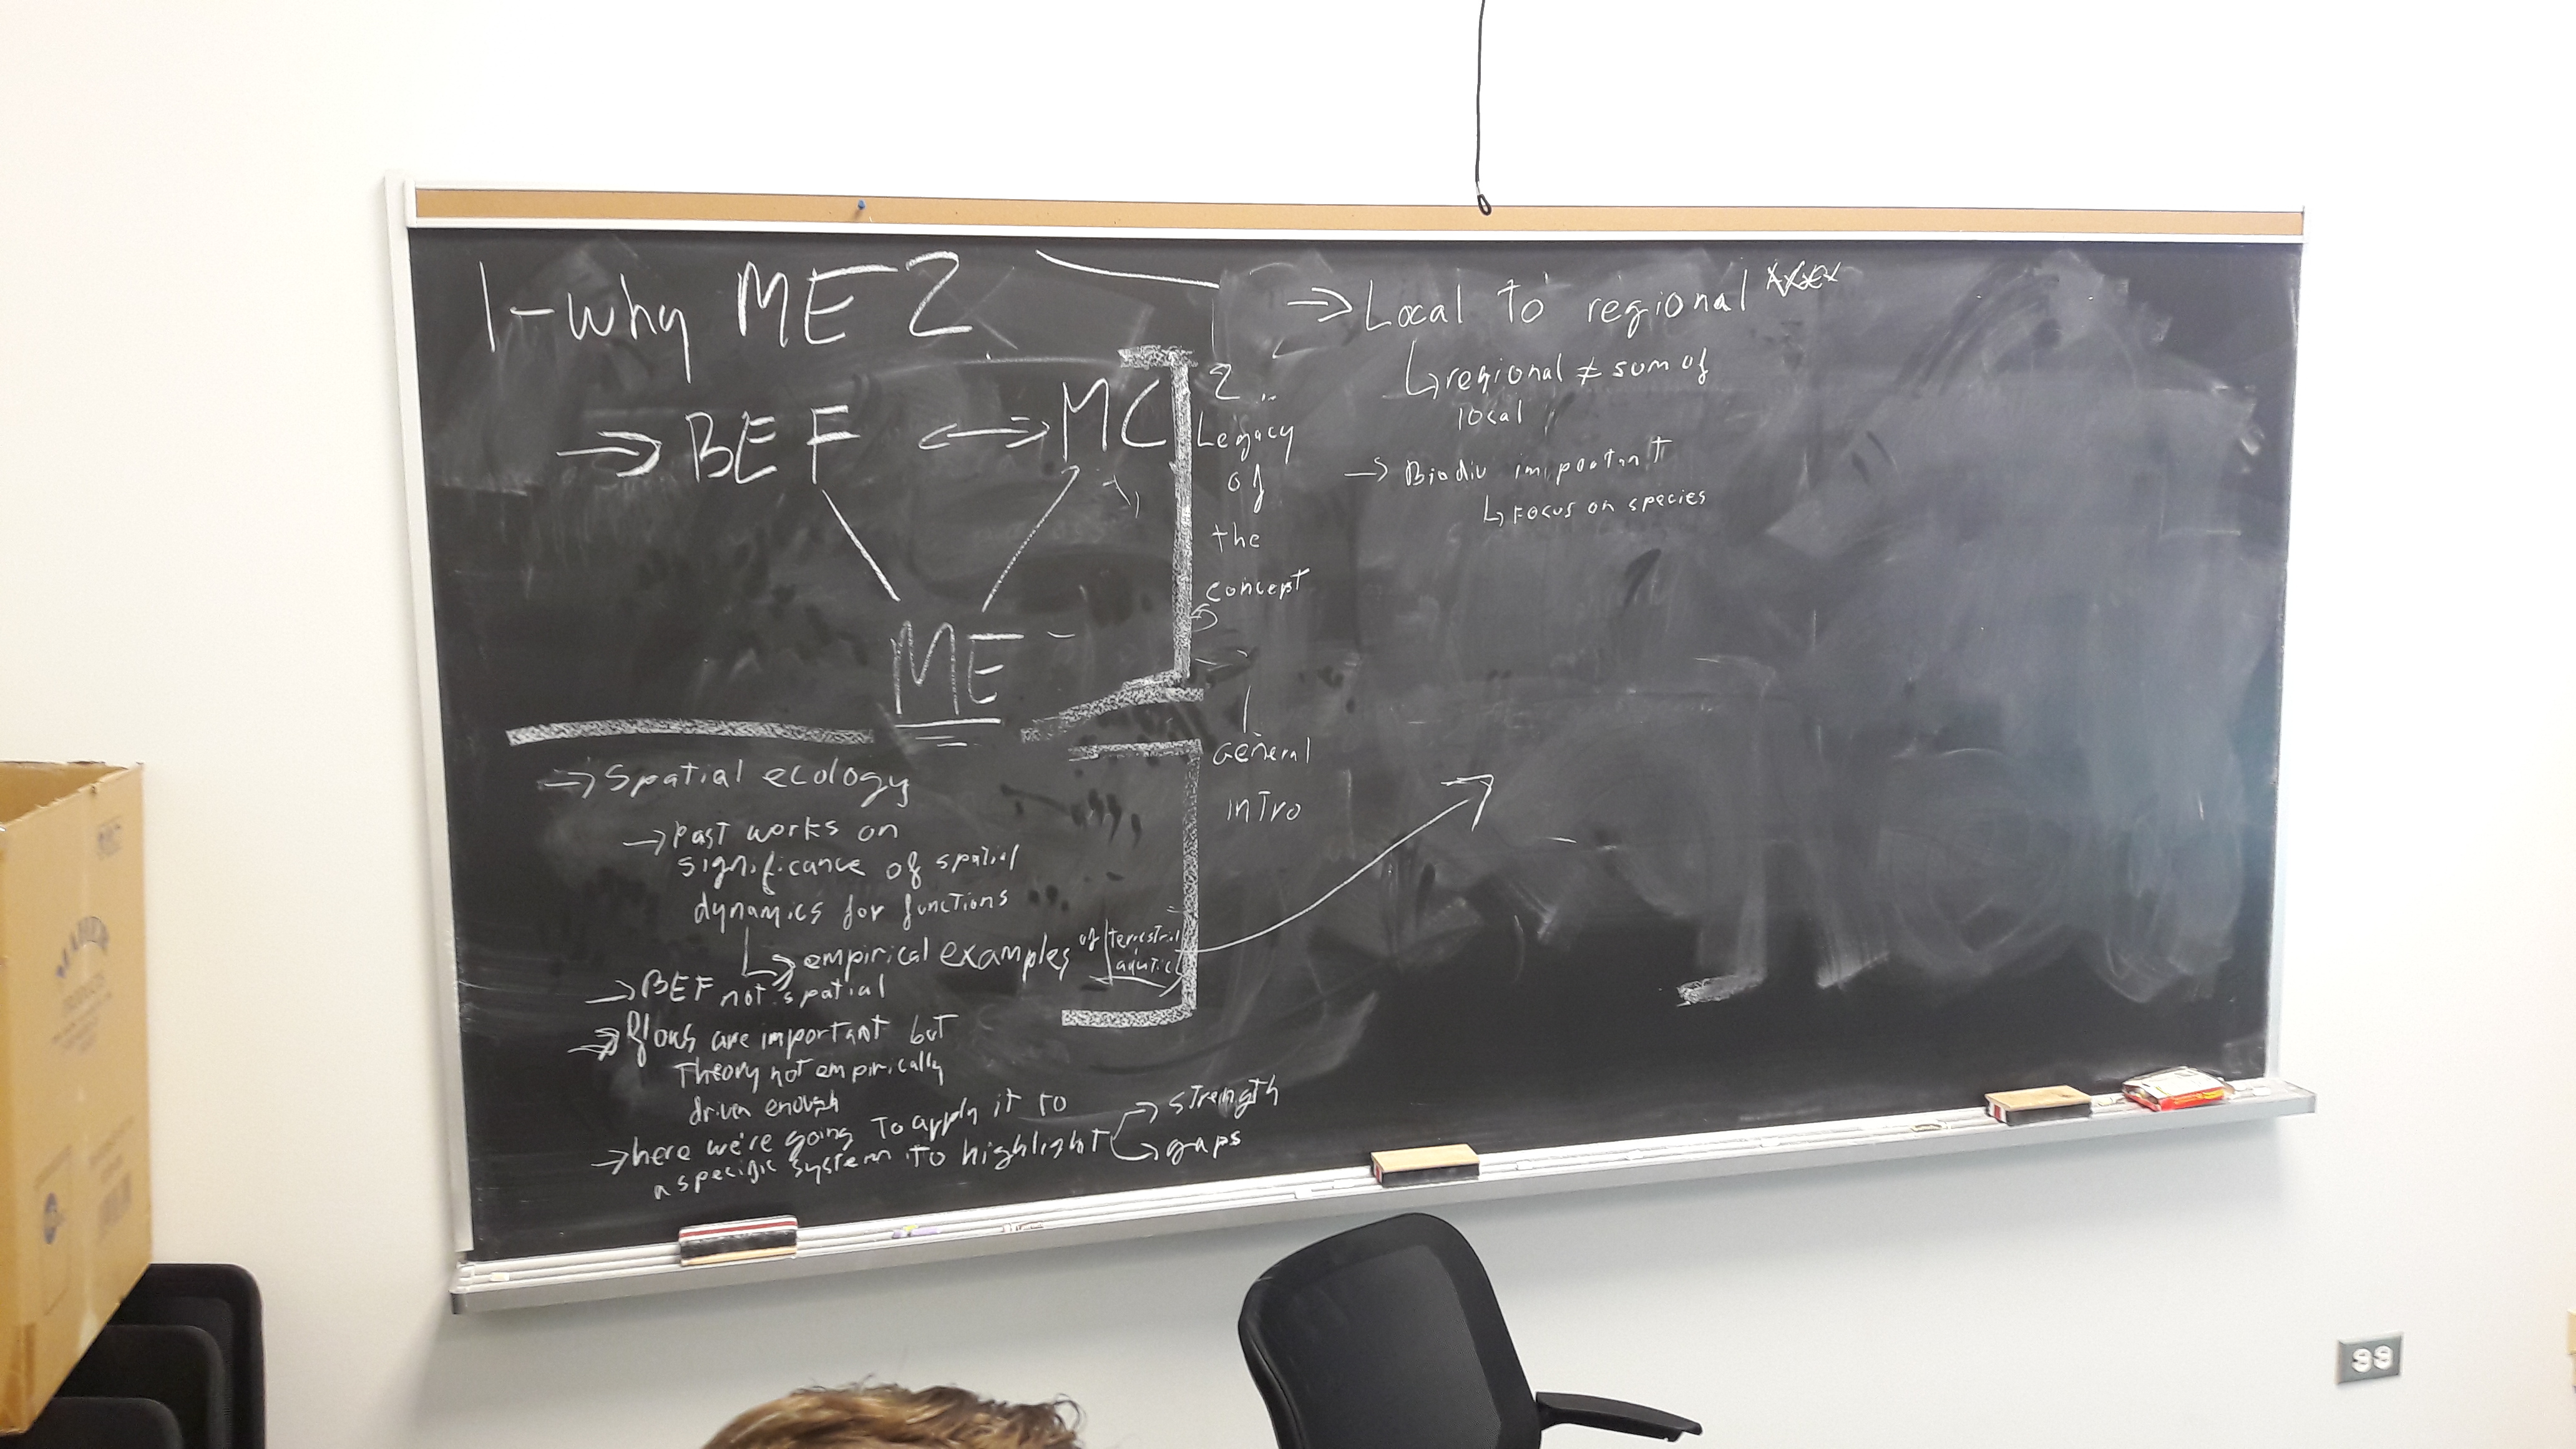 1-why ME?
→ BEF ↔ MC
ME
2
Legacy
of
the
concept
1
General
intro
→ Spatial ecology
→ Past works on
significance of spatial
dynamics for functions
↳ empirical examples of terrestrial
aquatic
→ BEF not spatial
→ flows are important but
Theory not empirically
driven enough
→ here we're going to apply it to
a specific system to highlight → strength
→ gaps
→ Local to regional
↳ regional ≠ sum of
local
→ Biodiv important
↳ Focus on species